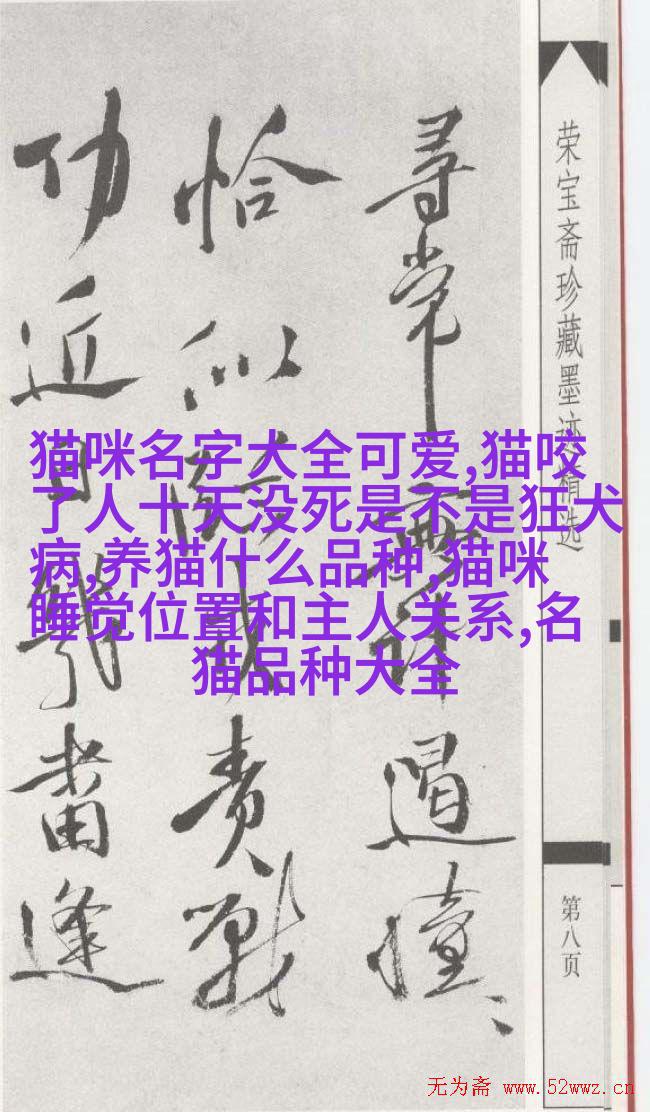 猫咪名字大全可爱,猫咬
了人十天没死是不是狂犬
病,养猫什么品种,猫咪
睡觉位置和主人关系,名
猫品种大全
荣宝斋珍藏墨迹精选
第八页
尋常
遏憧、
恰似
责戰
功近
畨逢
无为斋 www.52wwz.cn